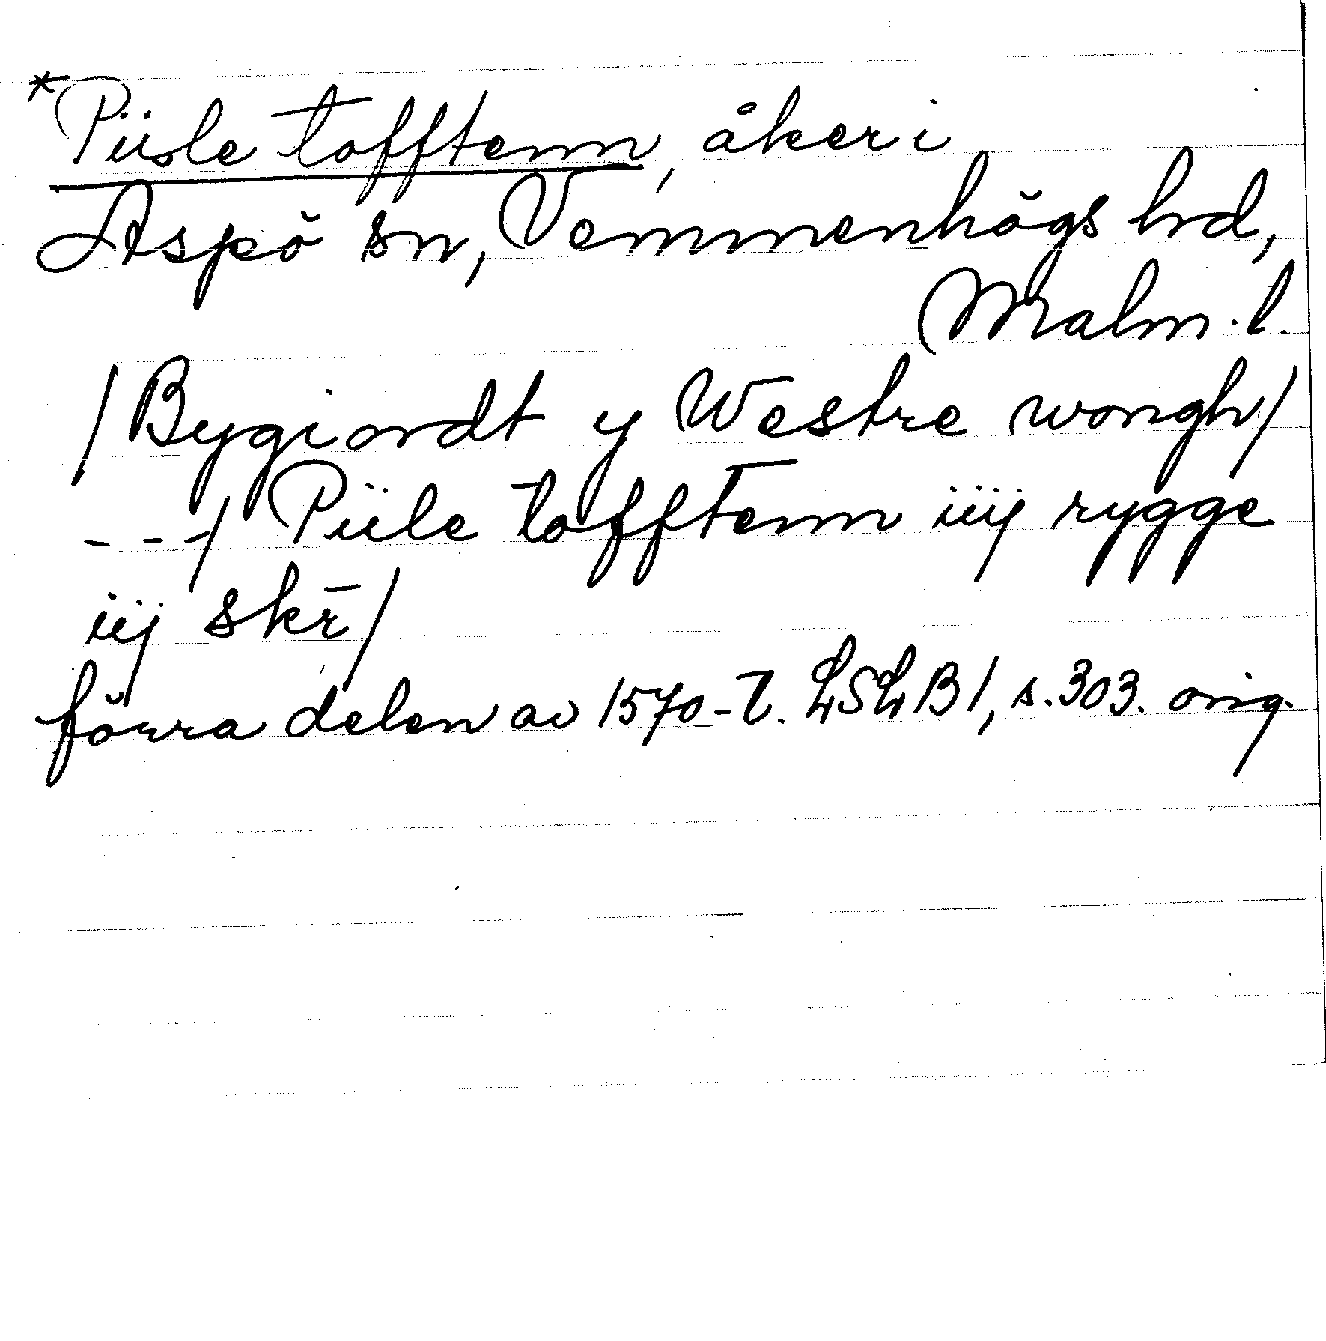 *Piisle tofftenn, åker i
Aspö sn, Vemmenhögs hd,
Malm. l.
/Bygiordt y Westre wongh/
---/ Piile tofftenn iiij rygge
iij skr̄/
förra delen av 1570-t. LSLB1, s. 303. orig.